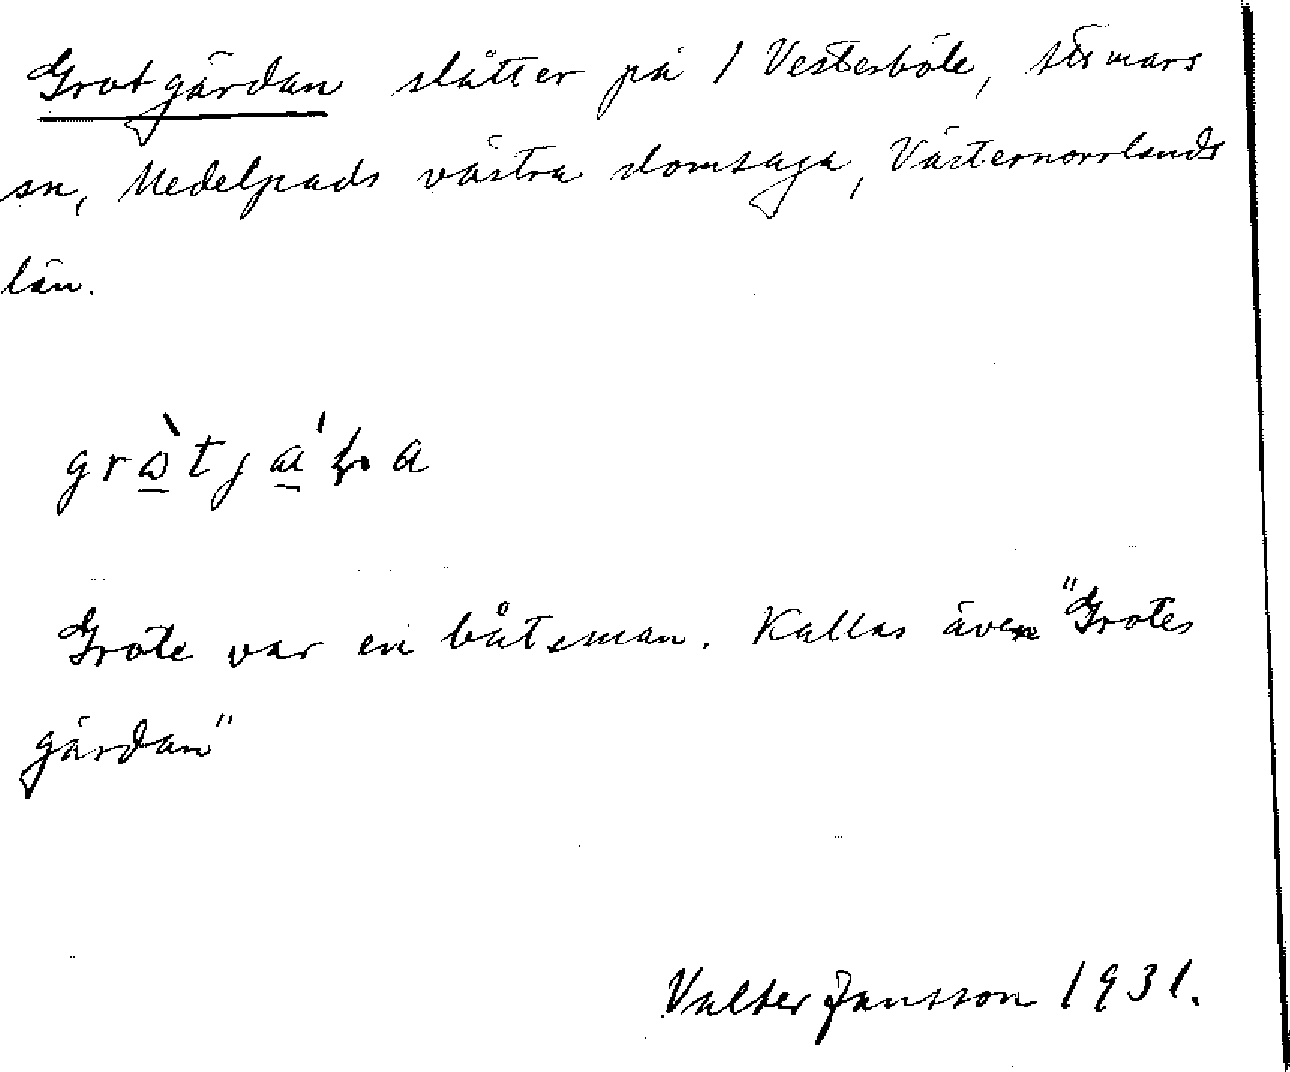 Grotgärdan slåtter på 1 Vesterböle, Attmars
sn, Medelpads västra domsaga, Västernorrlands
län.
Grote var en båtsman. Kallas även "Grotes
gärdan"
Valter Jansson 1931.